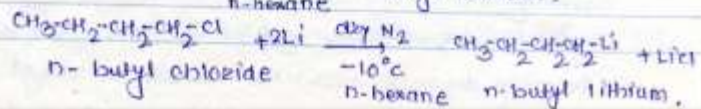 n-hexane
CH₃-CH₂-CH₂-CH₂-Cl +2Li dry N₂ CH₃-CH₂-CH₂-CH₂-Li + LiCl
n- butyl chloride -10°C n-hexane n-butyl lithium.